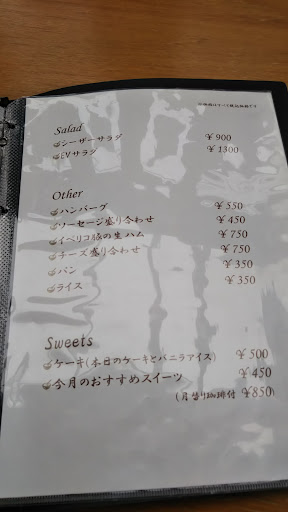 Salad
シーザーサラダ ¥900
EVサラダ ¥1300
Other
ハンバーグ ¥550
ソーセージ盛り合わせ ¥450
イベリコ豚の生ハム ¥750
チーズ盛り合わせ ¥750
パン ¥350
ライス ¥350
Sweets
ケーキ(本日のケーキとバニラアイス) ¥500
今月のおすすめスイーツ ¥450
(月替り珈琲付 ¥850)